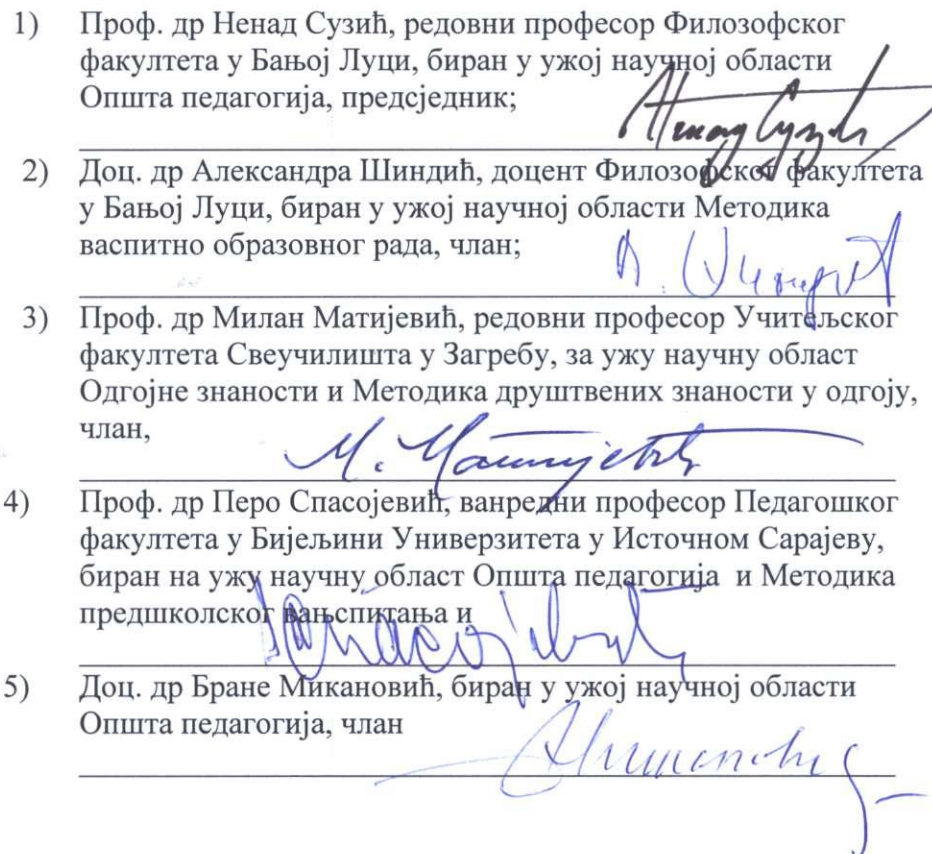 1) Проф. др Ненад Сузић, редовни професор Филозофског
факултета у Бањој Луци, биран у ужој научној области
Општа педагогија, предсједник;
Ненад Сузић
2) Доц. др Александра Шиндић, доцент Филозофског факултета
у Бањој Луци, биран у ужој научној области Методика
васпитно образовног рада, члан;
А. Шиндић
3) Проф. др Милан Матијевић, редовни професор Учитељског
факултета Свеучилишта у Загребу, за ужу научну област
Одгојне знаности и Методика друштвених знаности у одгоју,
члан,
М. Матијевић
4) Проф. др Перо Спасојевић, ванредни професор Педагошког
факултета у Бијељини Универзитета у Источном Сарајеву,
биран на ужу научну област Општа педагогија и Методика
предшколског вањспитања и
5) Доц. др Бране Микановић, биран у ужој научној области
Општа педагогија, члан